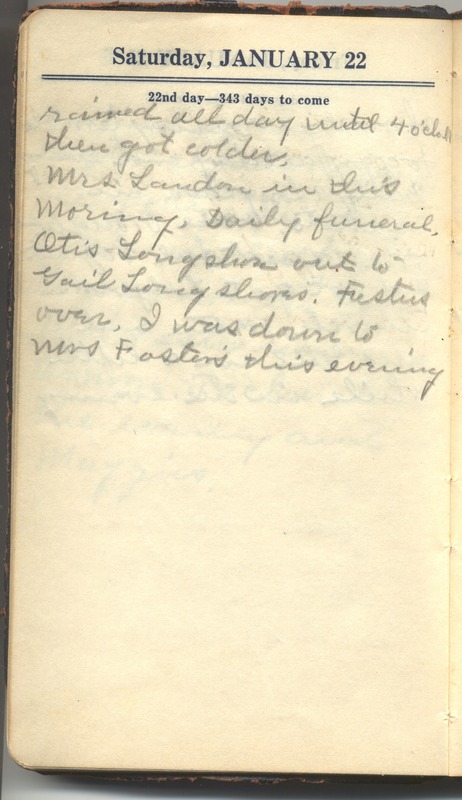 Saturday, JANUARY 22
22nd day—343 days to come
rained all day until 4 o'clock
then got colder.
Mrs Landon in this
Moring, Daily funeral,
Otis Longshore out to
Gail Longshores. Festus
over, I was down to
Mrs Fosters this evening